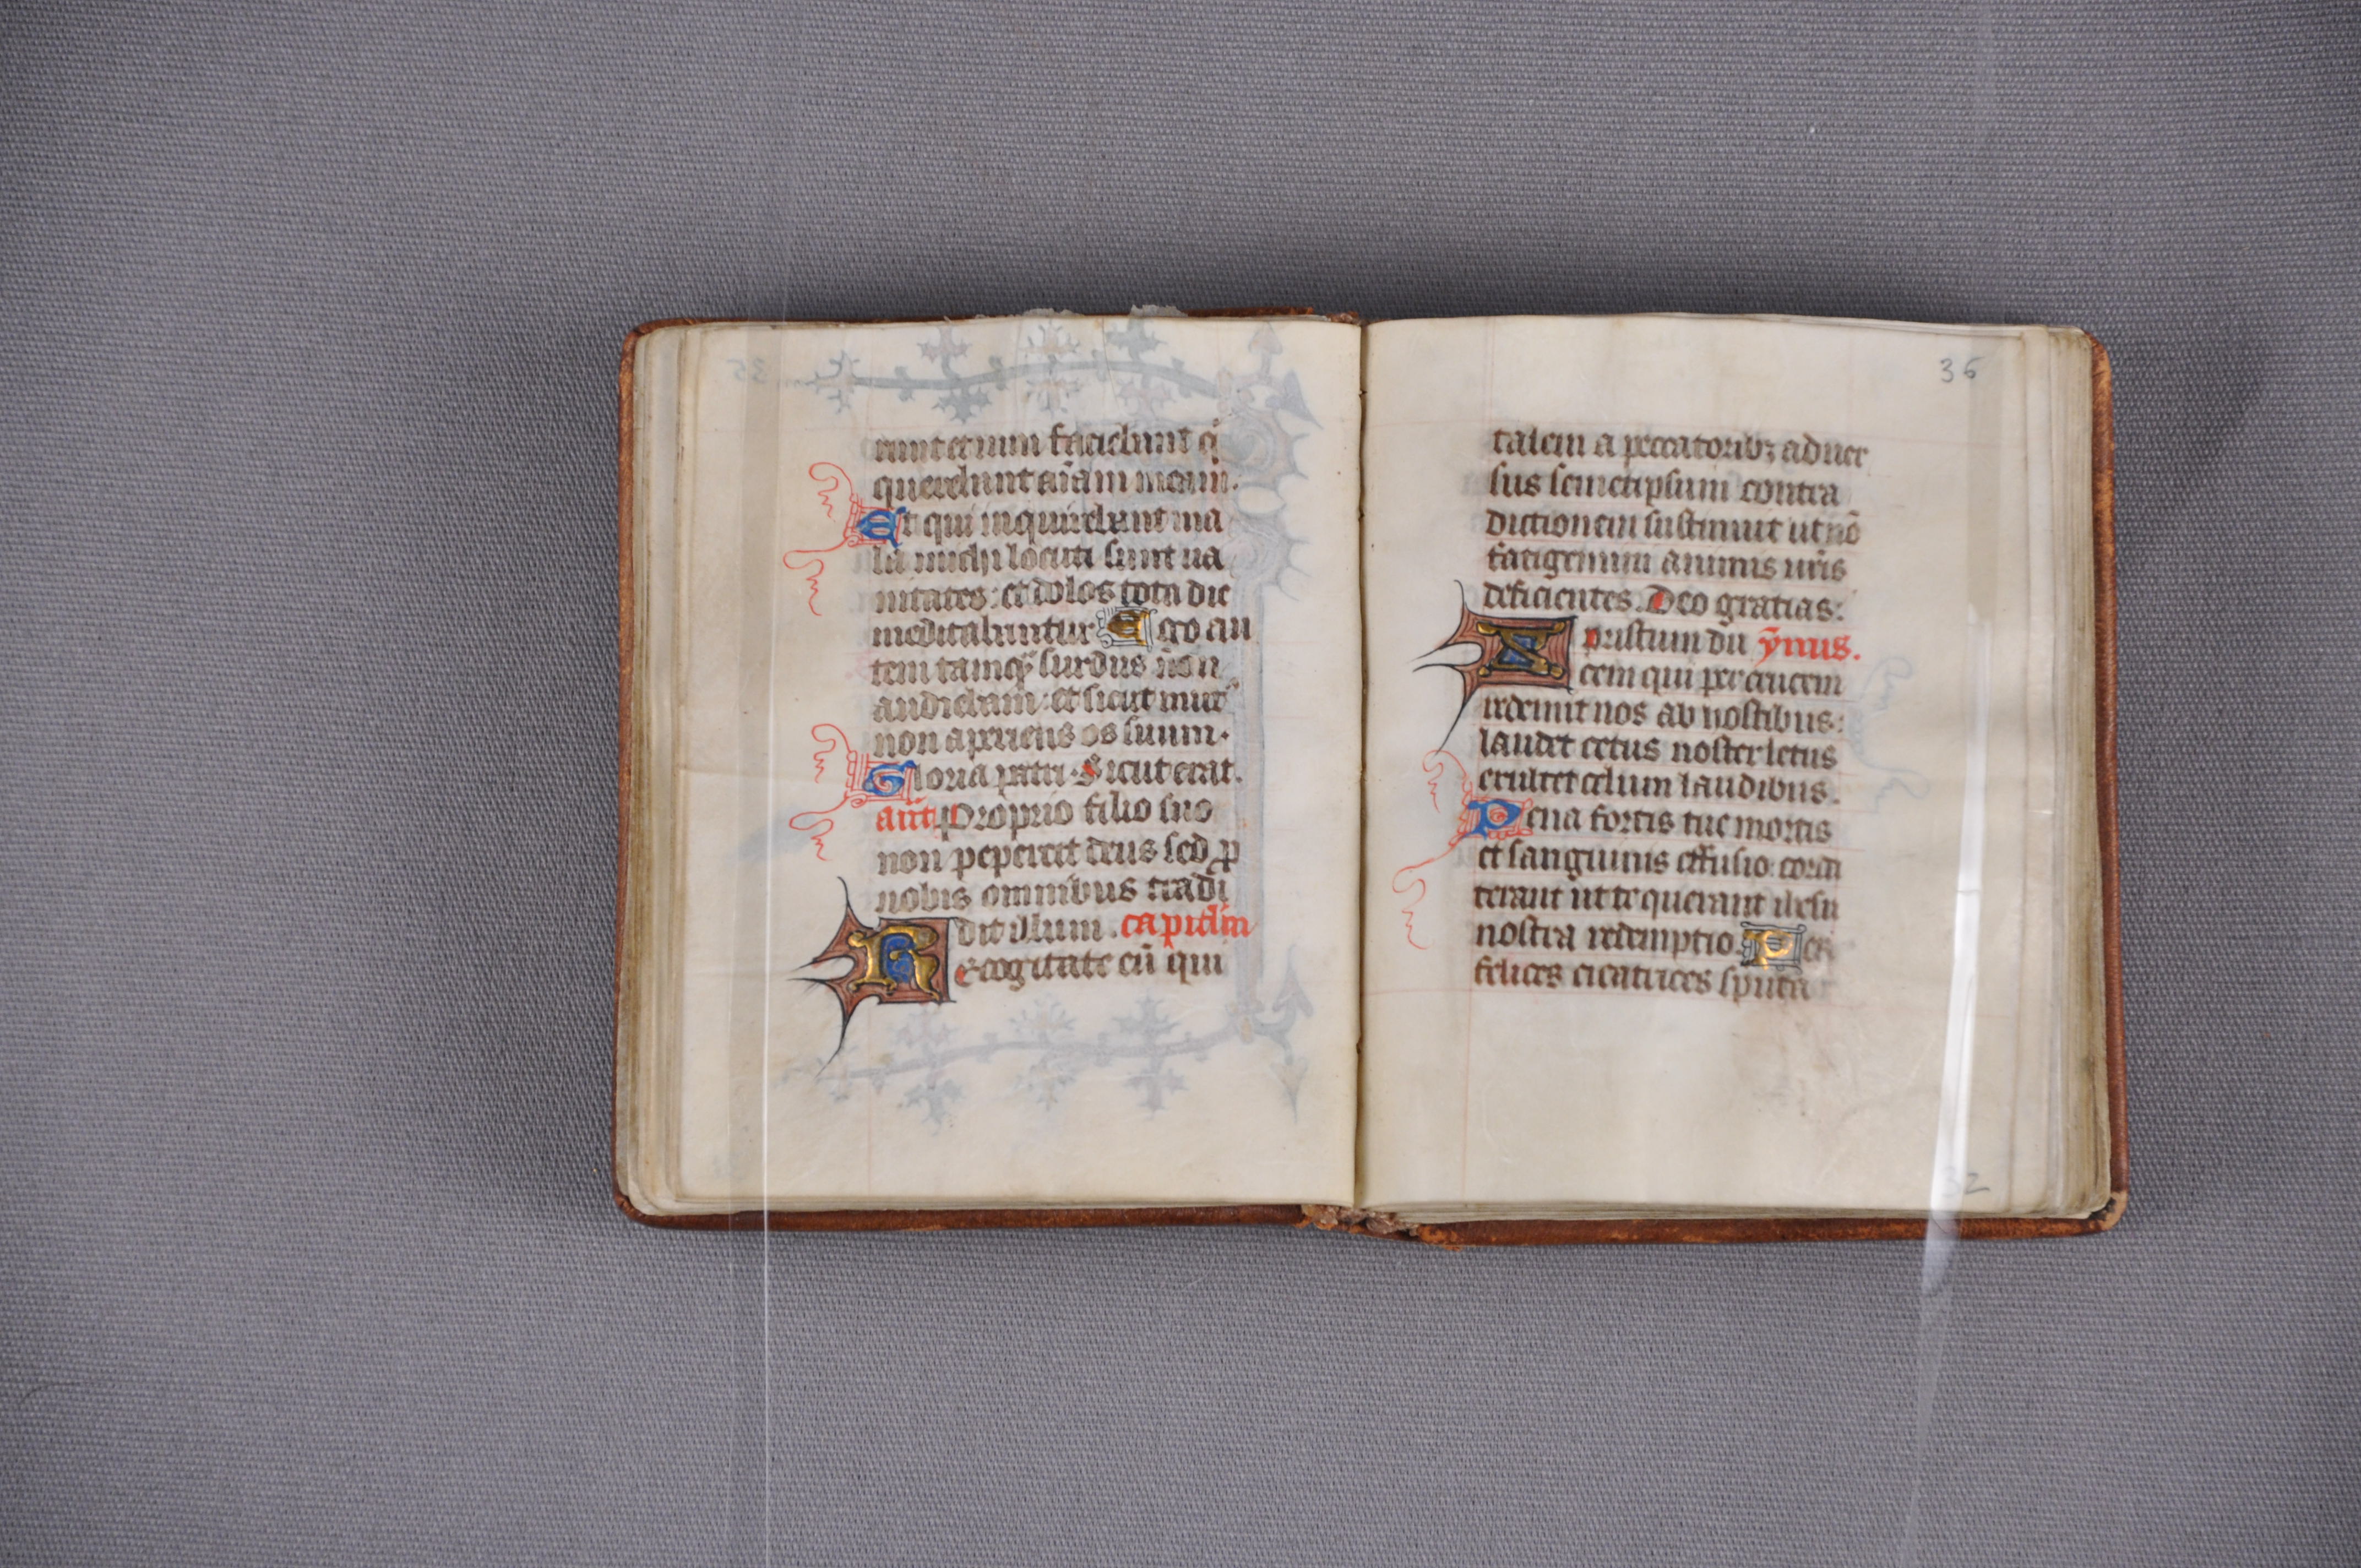 runt et uim faciebant q̇
querebant aīam meam.
Et qui inquirebant ma
la michi locuti sunt ua
nitates: et dolos tota die
meditabuntur Ego au
tem tamq̄ surdus non
audiebam: et sicut mut⁹
non aperiens os suum.
Gloria patri. Sicut erat.
añt. Proprio filio suo
non pepercit deus sed ꝓ
nobis omnibus tradi
dit illum. capitlm̄
Recogitate eū qui
36
talem a peccatoribꝫ aduer
sus semetipsum contra
dictionem sustinuit ut nō
fatigemini animis ur̄is
deficientes. Deo gratias:
Xpristum du ȳnus.
cem qui per crucem
redemit nos ab hostibus:
laudet cetus noster letus
exultet celum laudibus.
Pena fortis tue mortis
et sanguinis effusio: corda
terant ut te querant ihesu
nostra redemptio. Per
felices cicatrices sputa
32